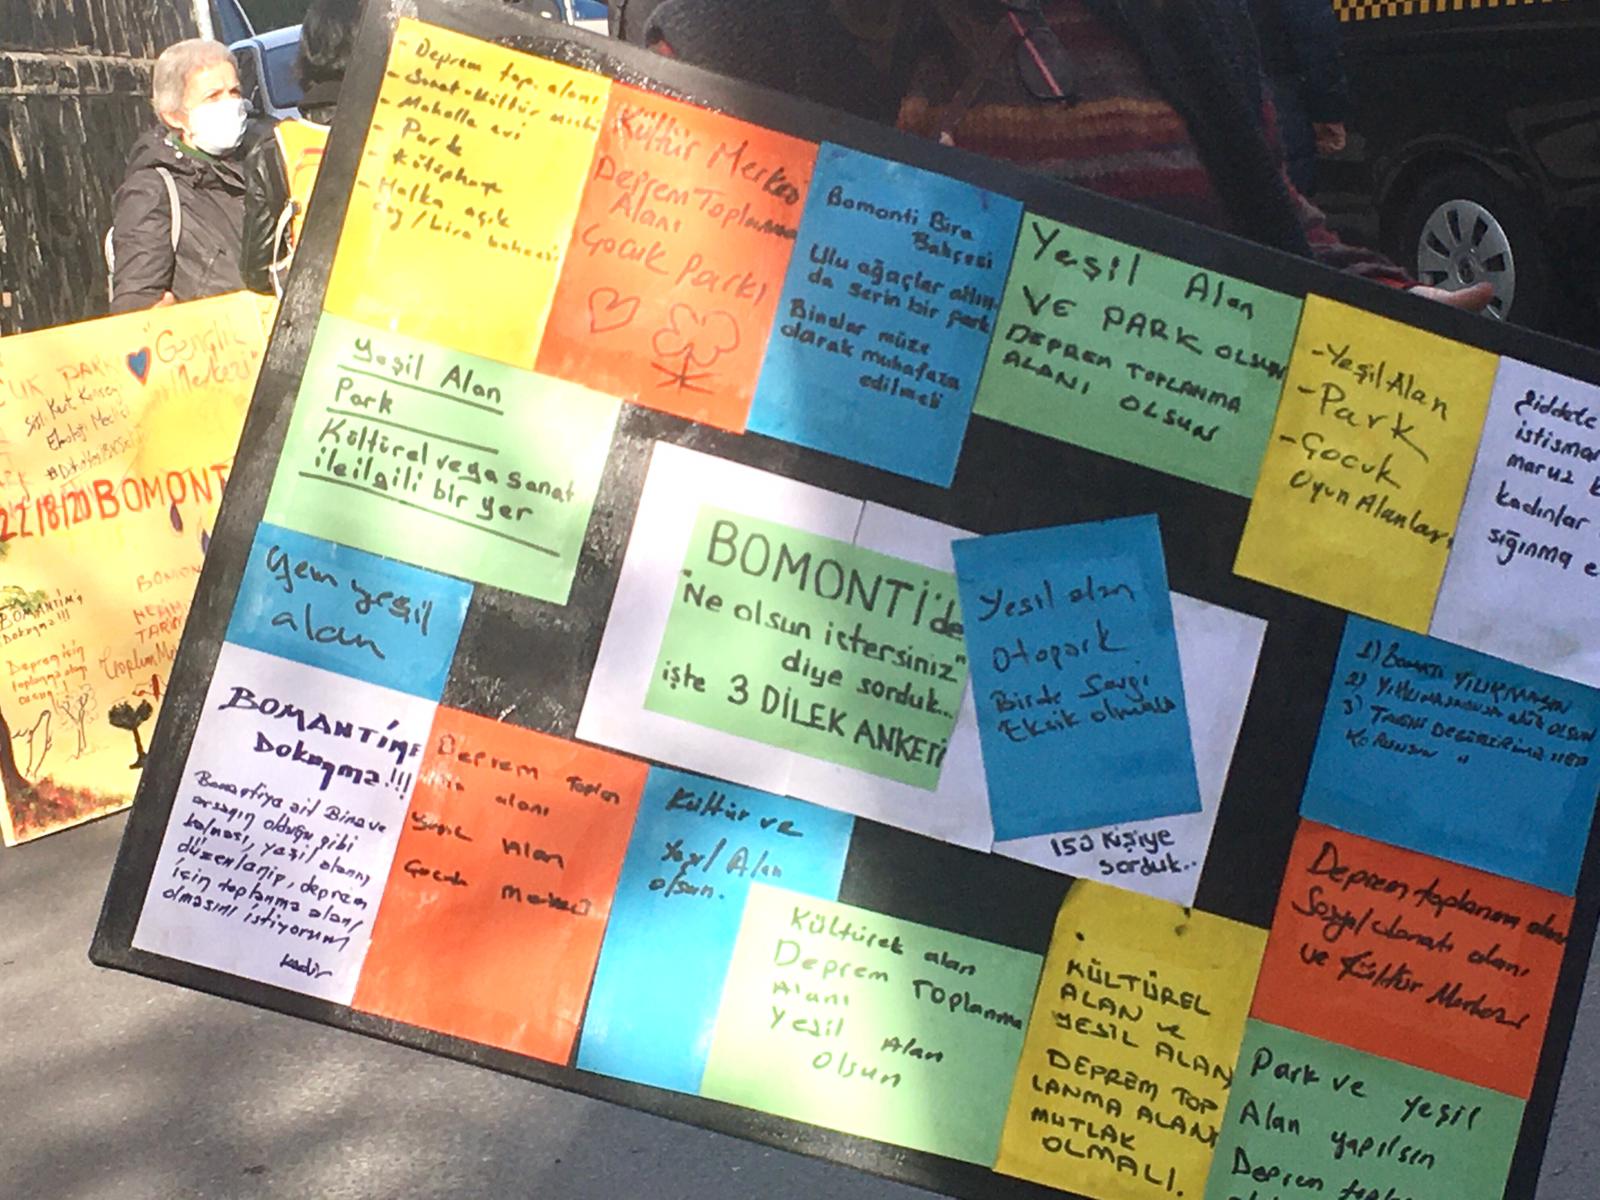 - Deprem top. alanı
- Sanat-Kültür
- Mahalle evi
- Park
- Kütüphane
- Halka açık
çay/bira bahçesi
Kültür Merkezi
Deprem Toplanma
Alanı
Çocuk Parkı
Bomonti Bira
Bahçesi
Ulu ağaçlar altın
da serin bir park
Binalar müze
olarak muhafaza
edilmeli
Yeşil Alan
VE PARK OLSUN
DEPREM TOPLANMA
ALANI OLSUN
-Yeşil Alan
-Park
-Çocuk
Oyun Alanları
şiddete
istismar
maruz
kadınlar
sığınma e
Yeşil Alan
Park
Kültürel veya sanat
ile ilgili bir yer
Yem yeşil
alan
BOMONTİ'de
"Ne olsun istersiniz"
diye sorduk...
işte 3 DİLEK ANKETİ
Yesil alan
Otopark
Birde Saygi
Eksik olmasa
150 kişiye
sorduk..
1) BOMONTİ YIKILMASIN
2)
3)
KORUNSUN "
BOMANTİME
Dokunma!!!
Bomantiye ait Bina ve
arsanın olduğu gibi
kalması, yeşil alanın
düzenlenip, deprem
için toplanma alanı
olmasını istiyorum
Kadir
Deprem Toplan
ma alanı
Yeşil Alan
Çocuk Merkezi
Kültür ve
Yeşil Alan
olsun.
Kültürel alan
Deprem Toplanma
Alanı
Yeşil Alan
Olsun
KÜLTÜREL
ALAN ve
YESİL ALAN
DEPREM TOP
LANMA ALANI
MUTLAK
OLMALI.
Deprem toplanma alanı
Sosyal donatı alanı
ve Kültür Merkezi
Park ve yeşil
Alan yapılsın
Deprem toplan
"Gençlik
Merkezi"
CUK PARK
Şişli Kent Konseyi
Ekoloji Meclisi
22/8/20 BOMONT
BOMANTİM'e
Dokunma!!!
Deprem için
toplanma alanı
olsun
BOMON
TARİ
Toplum M